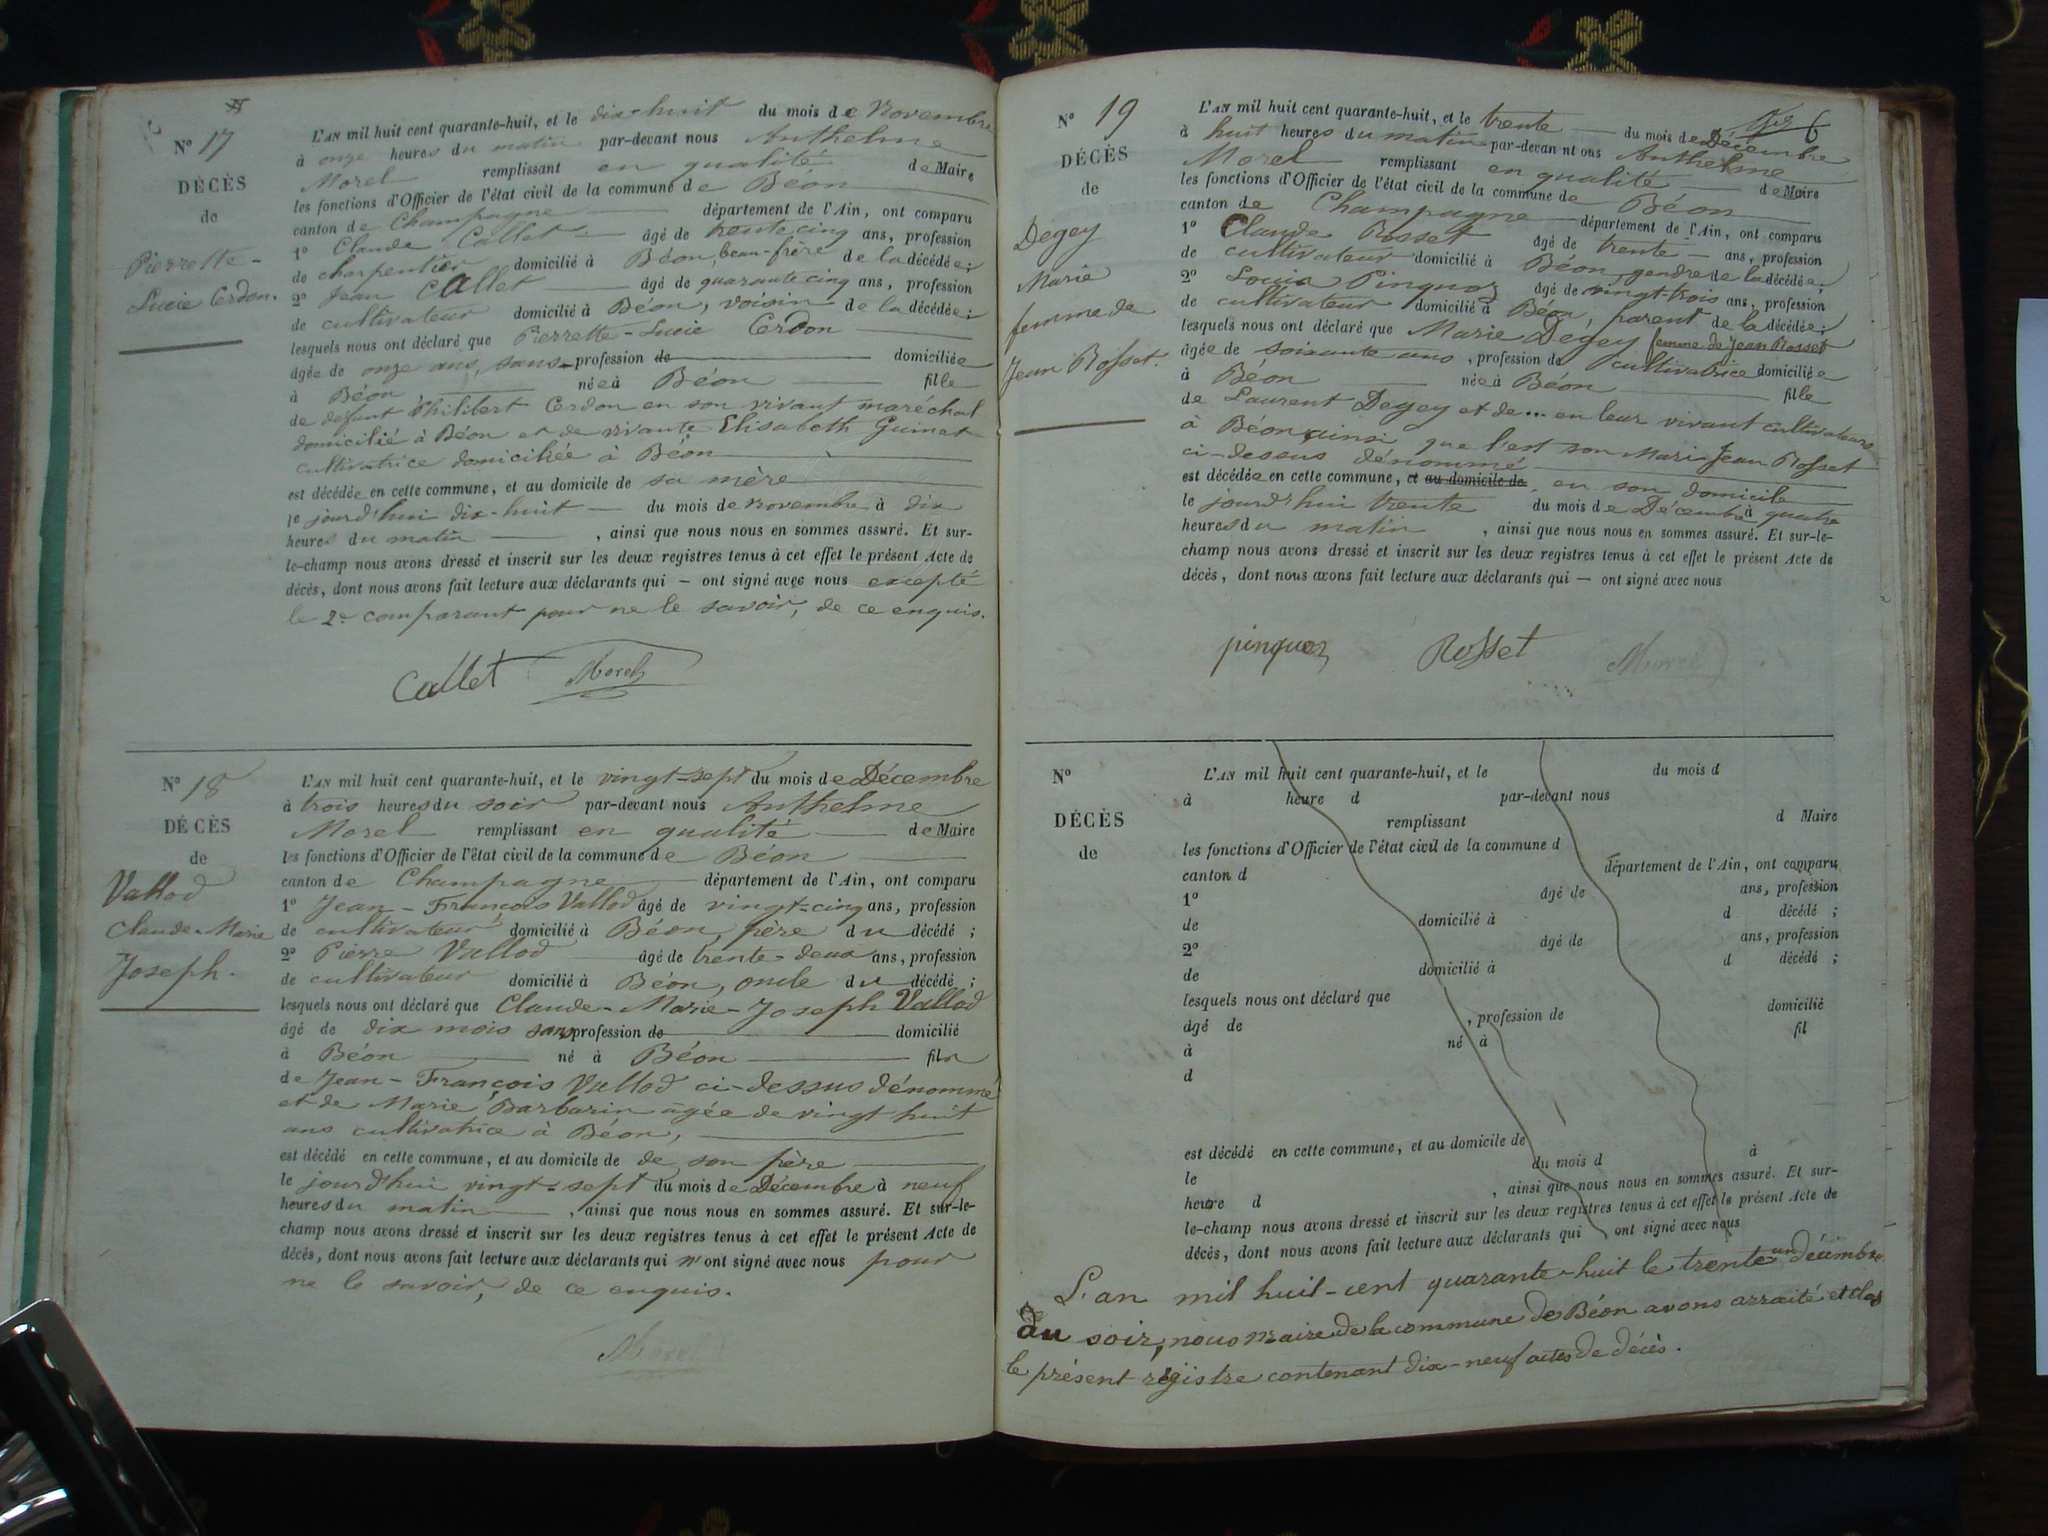 N° 17
DÉCÈS
de
Pierrette-
Lucie Cerdon.
L'AN mil huit cent quarante-huit, et le dix-huit du mois de Novembre
à onze heures du matin par-devant nous Anthelme
Morel remplissant en qualité de Maire
les fonctions d'Officier de l'état civil de la commune de Béon
canton de Champagne département de l'Ain, ont comparu
1° Claude Callet âgé de trente cinq ans, profession
de charpentier domicilié à Béon, beau-frère de la décédée;
2° Jean Callet âgé de quarante cinq ans, profession
de cultivateur domicilié à Béon, voisin de la décédée;
lesquels nous ont déclaré que Pierrette-Lucie Cerdon
âgée de onze ans, sans profession de domiciliée
à Béon née à Béon fille
de defunt Philibert Cerdon en son vivant maréchal
domicilié à Béon et de vivante Elisabeth Guinet
cultivatrice domiciliée à Béon
est décédée en cette commune, et au domicile de sa mère
le jourd'hui dix-huit du mois de Novembre à dix
heures du matin , ainsi que nous nous en sommes assuré. Et sur-
le-champ nous avons dressé et inscrit sur les deux registres tenus à cet effet le présent Acte de
décès, dont nous avons fait lecture aux déclarants qui — ont signé avec nous excepté
le 2e comparant pour ne le savoir, de ce enquis.
Callet Morel
N° 18
DÉCÈS
de
Vallod
Claude-Marie
Joseph.
L'AN mil huit cent quarante-huit, et le vingt-sept du mois de Décembre
à trois heures du soir par-devant nous Anthelme
Morel remplissant en qualité de Maire
les fonctions d'Officier de l'état civil de la commune de Béon
canton de Champagne département de l'Ain, ont comparu
1° Jean-François Vallod âgé de vingt-cinq ans, profession
de cultivateur domicilié à Béon, père du décédé ;
2° Pierre Vallod âgé de trente-deux ans, profession
de cultivateur domicilié à Béon, oncle du décédé ;
lesquels nous ont déclaré que Claude-Marie-Joseph Vallod
âgé de dix mois sans profession de domicilié
à Béon né à Béon fils
de Jean-François Vallod ci-dessus dénommé
et de Marie Barbarin âgée de vingt huit
ans cultivatrice à Béon,
est décédé en cette commune, et au domicile de de son père
le jourd'hui vingt-sept du mois de Décembre à neuf
heures du matin , ainsi que nous nous en sommes assuré. Et sur-le-
champ nous avons dressé et inscrit sur les deux registres tenus à cet effet le présent Acte de
décès, dont nous avons fait lecture aux déclarants qui n'ont signé avec nous pour
ne le savoir, de ce enquis.
Morel
6
N° 19
DÉCÈS
de
Degey
Marie
femme de
Jean Rosset.
L'AN mil huit cent quarante-huit, et le trente du mois de Décembre
à huit heures du matin par-devan nt ous Anthelme
Morel remplissant en qualité de Maire
les fonctions d'Officier de l'état civil de la commune de Béon
canton de Champagne département de l'Ain, ont comparu
1° Claude Rosset âgé de trente ans, profession
de cultivateur domicilié à Béon, gendre de la décédée;
2° Louis Pinquoz âgé de vingt-trois ans, profession
de cultivateur domicilié à Béon, parent de la décédée;
lesquels nous ont déclaré que Marie Degey femme de Jean Rosset
âgée de soixante ans , profession de cultivatrice domiciliée
à Béon née à Béon fille
de Laurent Degey et de ... en leur vivant cultivateurs
à Béon, ainsi que l'est son Mari Jean Rosset
ci-dessus dénommé
est décédée en cette commune, et au domicile de en son domicile
le jourd'hui trente du mois de Décembre à quatre
heures du matin , ainsi que nous nous en sommes assuré. Et sur-le-
champ nous avons dressé et inscrit sur les deux registres tenus à cet effet le présent Acte de
décès, dont nous avons fait lecture aux déclarants qui — ont signé avec nous
pinquoz Rosset Morel
N°
DÉCÈS
de
L'AN mil huit cent quarante-huit, et le du mois d
à heure d par-devant nous
remplissant d Maire
les fonctions d'Officier de l'état civil de la commune d
canton d département de l'Ain, ont comparu
1° âgé de ans, profession
de domicilié à d décédé ;
2° âgé de ans, profession
de domicilié à d décédé ;
lesquels nous ont déclaré que
âgé de , profession de domicilié
à né à fil
d
est décédé en cette commune, et au domicile de
le du mois d à
heure d , ainsi que nous nous en sommes assuré. Et sur-
le-champ nous avons dressé et inscrit sur les deux registres tenus à cet effet le présent Acte de
décès, dont nous avons fait lecture aux déclarants qui ont signé avec nous
L'an mil huit-cent quarante-huit le trente un décembre
du soir, nous maire de la commune de Béon avons arraité et clos
le présent régistre contenant dix-neuf actes de décès.